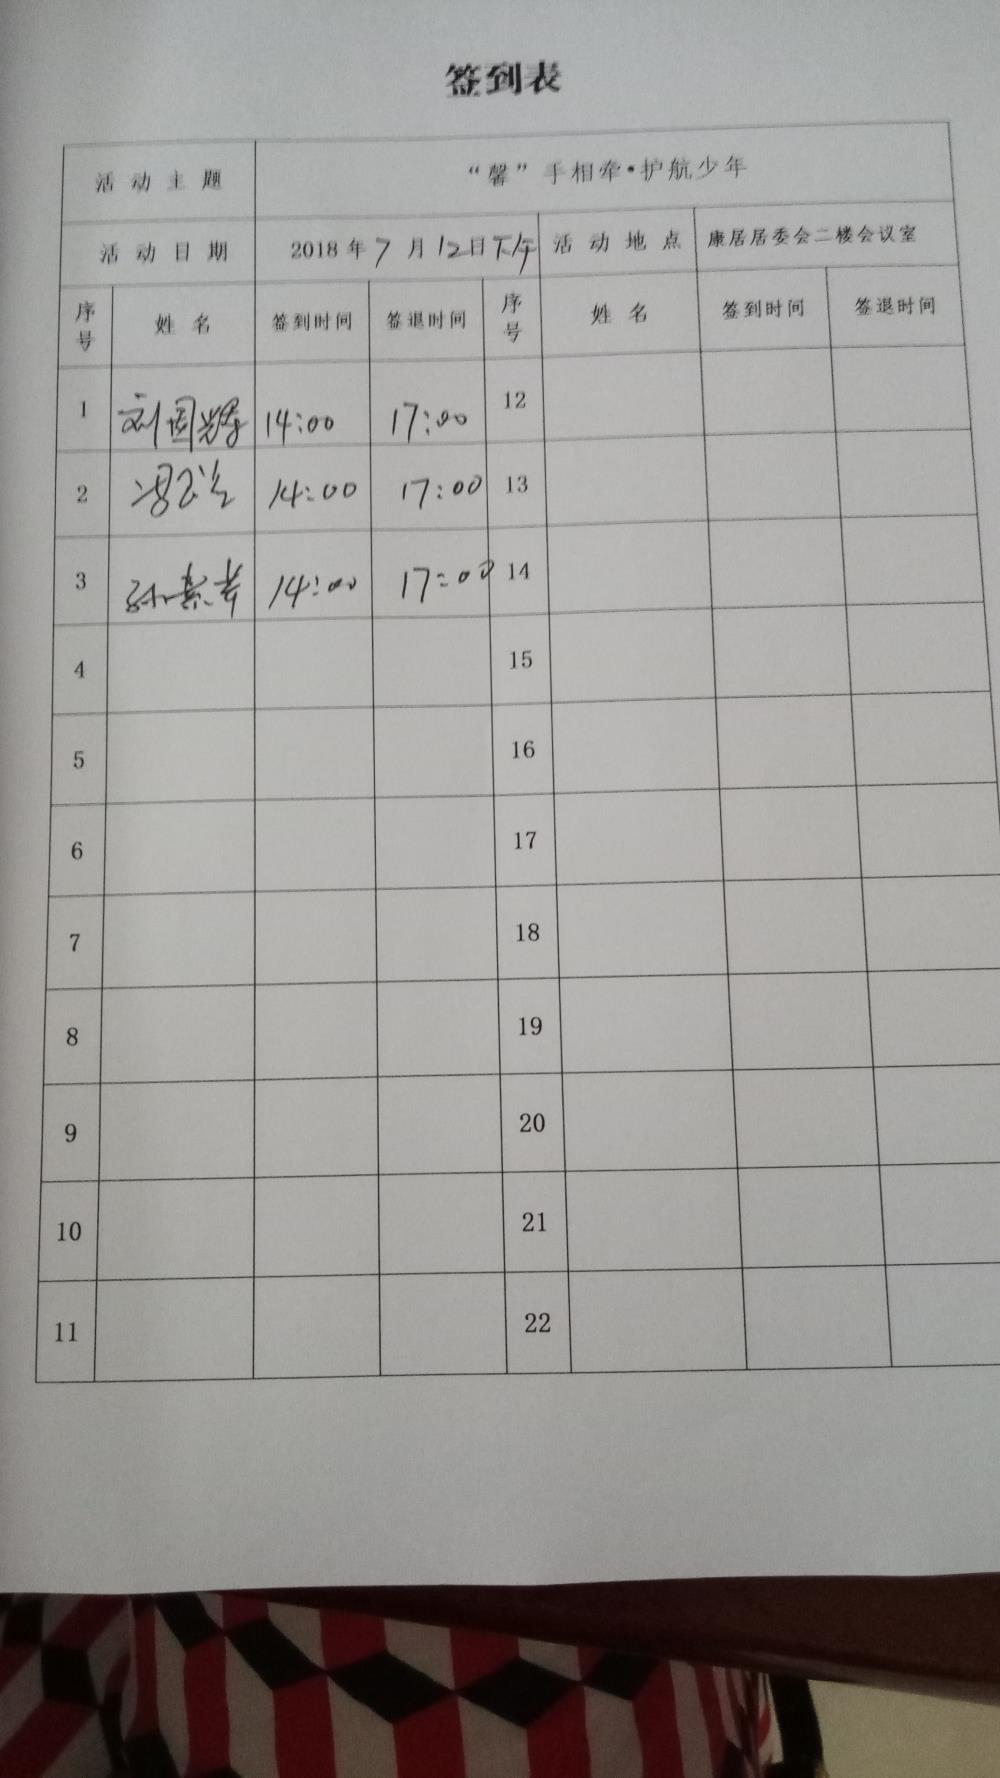 签到表
活动主题 “馨”手相牵·护航少年
活动日期 2018年7月12日下午 活动地点 康居居委会二楼会议室
序号 姓名 签到时间 签退时间 序号 姓名 签到时间 签退时间
1 刘国辉 14:00 17:00 12
2 14:00 17:00 13
3 孙素芳 14:00 17:00 14
4 15
5 16
6 17
7 18
8 19
9 20
10 21
11 22